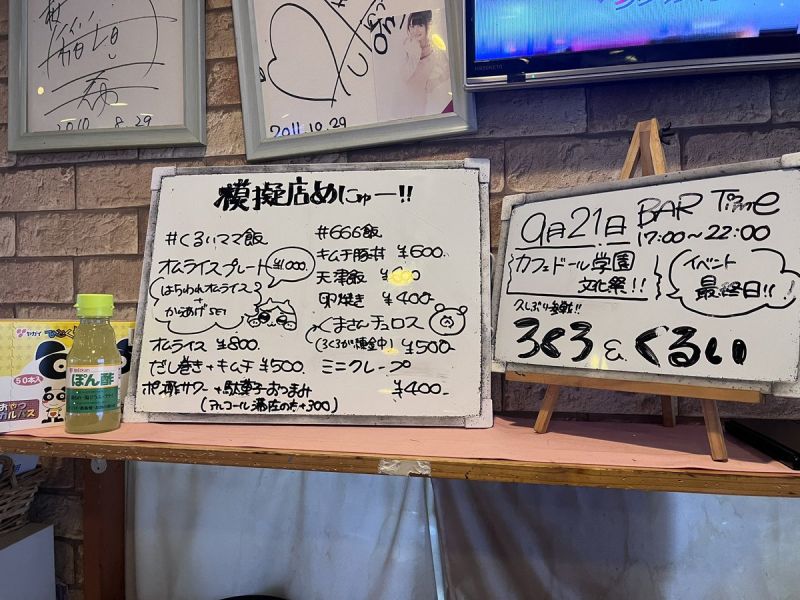 2010 8.29
2011.10.29
模擬店めにゅー!!
#くるいママ飯
オムライスプレート ¥1000.
はらわれオムライス
+
からあげSET
オムライス ¥800.
だし巻き+キムチ ¥500.
ポン酢サワー+駄菓子おつまみ ¥400-
(アルコール
+300)
#666飯
キムチ豚丼 ¥600.
天津飯
卵焼き ¥400-
くまさんチュロス
(3く3が錬金中) ¥500-
ミニクレープ
9月21日 BAR Time
17:00~22:00
カフェドール学園
文化祭!!
イベント
最終日!!
久しぶり参戦!!
3く3 & ぐるい
ヤガイ
50本入
おやつ
カルパス
mizkan
ぽん酢